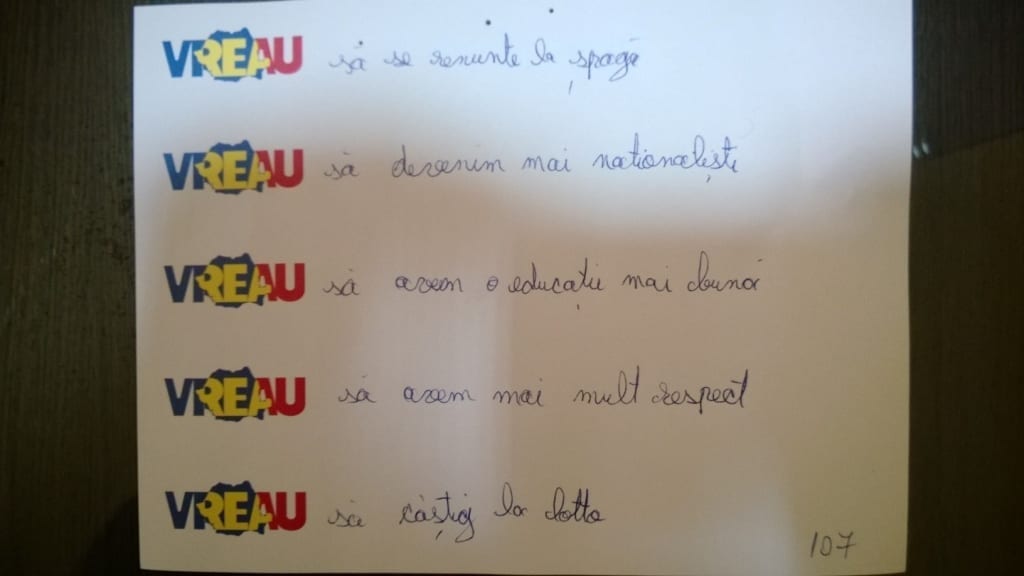 VREAU să se renunte la șpagă
VREAU să devenim mai naționaliști
VREAU să avem o educație mai bună
VREAU să avem mai mult respect
VREAU să câștig la lotto
107